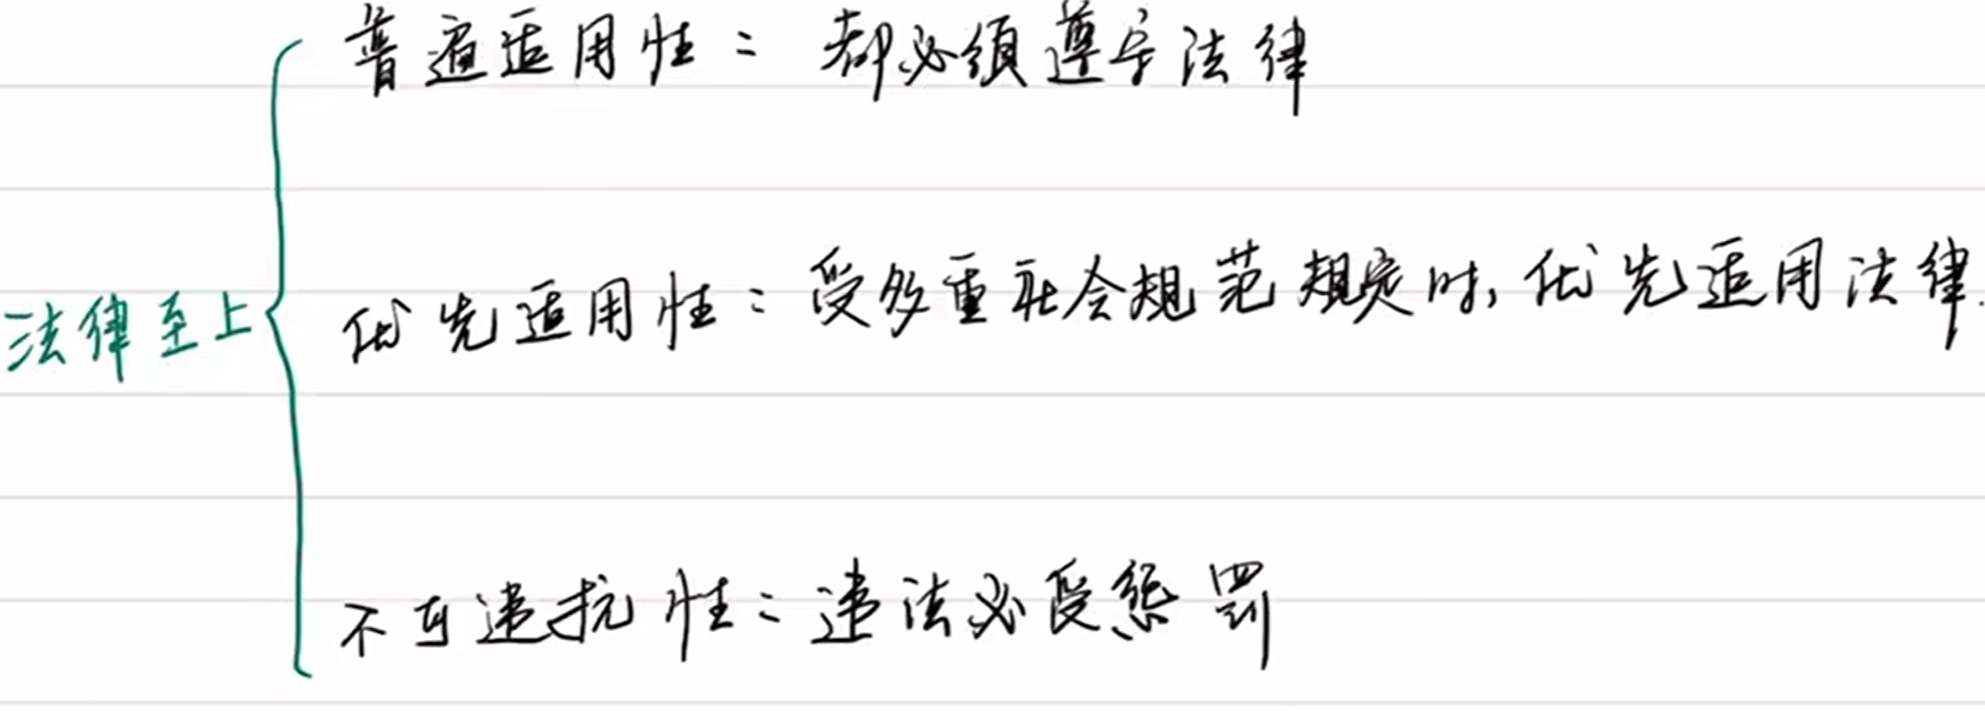 普遍适用性：都必须遵守法律
法律至上
优先适用性：受多重社会规范规定时，优先适用法律.
不可违抗性：违法必受惩罚